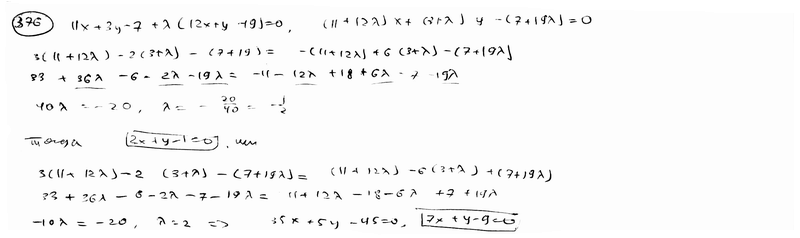 376 11x + 3y - 7 + λ(12x + y - 19) = 0, (11 + 12λ)x + (3 + λ)y - (7 + 19λ) = 0
3(11 + 12λ) - 2(3 + λ) - (7 + 19) = -(11 + 12λ) + 6(3 + λ) - (7 + 19λ)
33 + 36λ - 6 - 2λ - 19λ = -11 - 12λ + 18 + 6λ - 7 - 19λ
40λ = -20, λ = -20/40 = -1/2
Тогда 2x + y - 1 = 0, или
3(11 + 12λ) - 2(3 + λ) - (7 + 19λ) = (11 + 12λ) - 6(3 + λ) + (7 + 19λ)
33 + 36λ - 6 - 2λ - 7 - 19λ = 11 + 12λ - 18 - 6λ + 7 + 19λ
-10λ = -20, λ = 2 => 35x + 5y - 45 = 0, 7x + y - 9 = 0